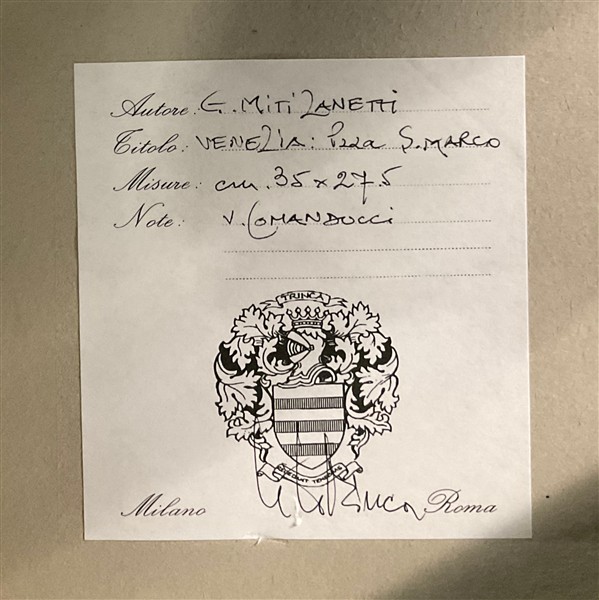 Autore: G. MITI ZANETTI
Titolo: VENEZIA: Pzza S. MARCO
Misure: cm. 35 x 27.5
Note: V. COMANDUCCI
TRINCA
Milano
Roma